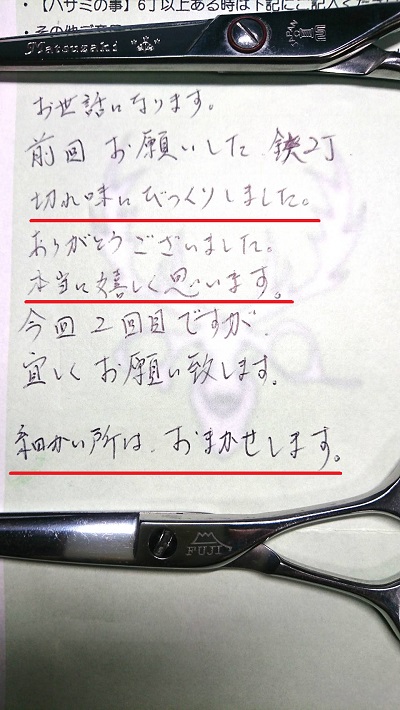 ・【ハサミの事】6丁以上ある時は下記にご記入くださ
Matsuzaki
お世話になります。
前回 お願いした 鋏2丁
切れ味にびっくりしました。
ありがとうございました。
本当に嬉しく思います。
今回2回目ですが
宜しくお願い致します。
細かい所は、おまかせします。
FUJI